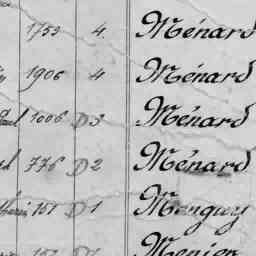 1753 4 Ménard
1906 4 Ménard
1006 D 3 Ménard
776 D 2 Ménard
151 D 1 Menguy
Menier